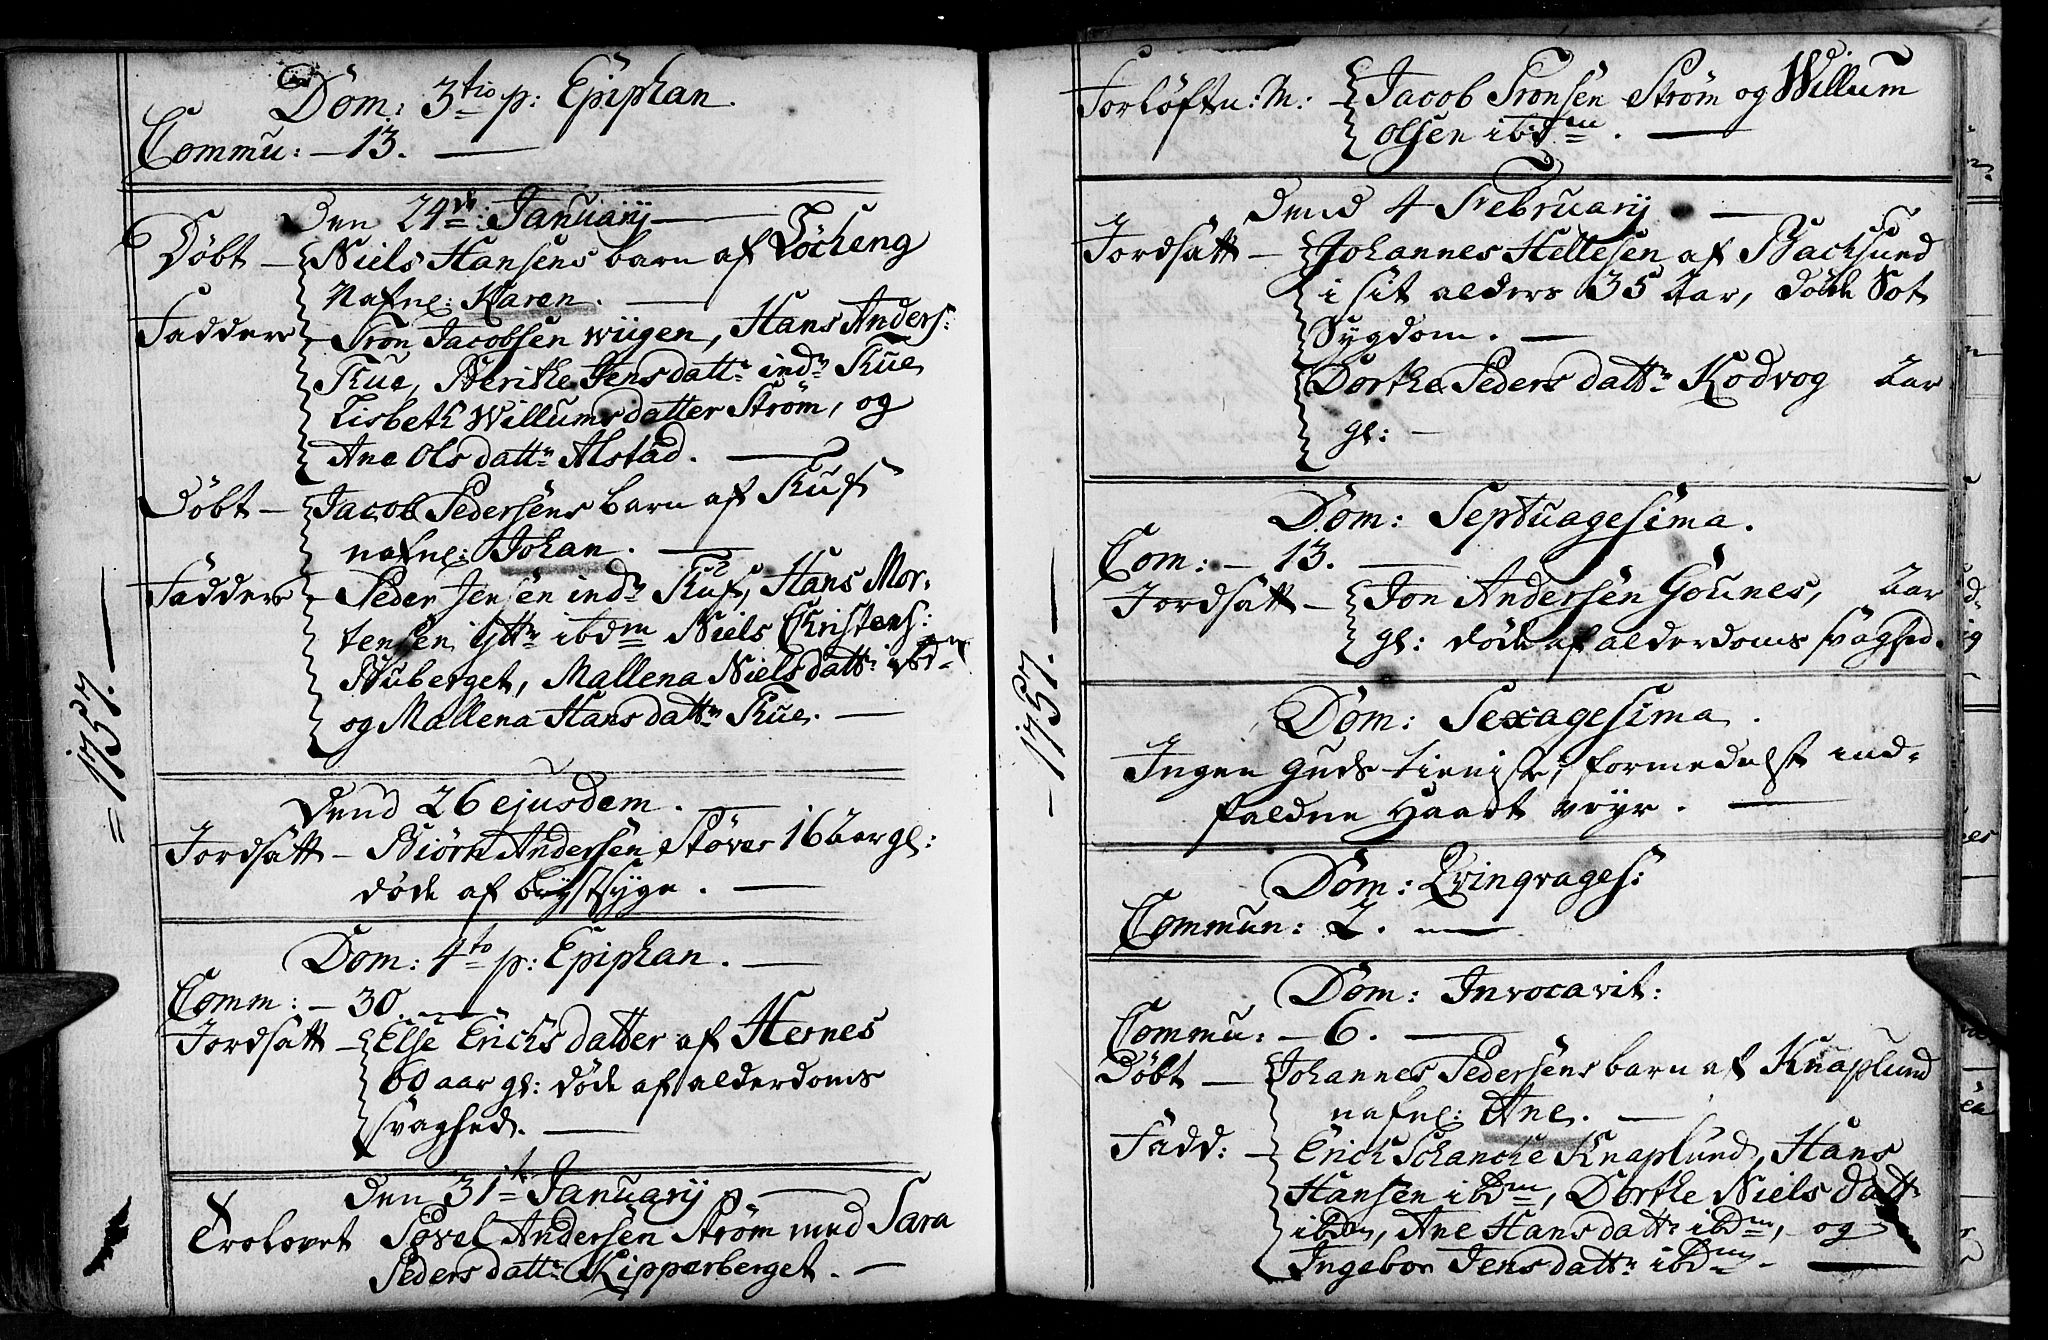 Dom: 3tio p: Epiphan.
Commu: – 13. —
Den 24de: Januarij —
Døbt – Niels Hansens barn af Löcheng
Nafnl: Karen. —
Faddere – Tron Jacobsen wiigen, Hans Anders:
Rue, Berithe Jensdattr indr Rue
Lisbeth Willumsdatter Strøm, og
Ane Olsdattr Alstad. —
Døbt – Jacob Pedersens barn af
nafnl: Johan. —
Faddere – Peder Jensen indr Hans Mor-
tensen ibdm Niels Christens:
Mallena Nielsdattr ibdm
og Mallena Hansdattr Rue. —
= 1757. —
Dend 26 ejusdem. —
Jordsatt – Biörn Andersen Støver 16 aar gl:
døde af brÿstsyge. —
Dom: 4to p: Epiphan. —
Comm: – 30. —
Jordsatt – Else Erichsdatter af Hernes
60 aar gl: døde af alderdoms
svaghed. —
Den 31te Januarij —
Trolovet Povel Andersen Strøm med Sara
Pedersdattr Kipperberget. —
Forløftn: M: – Jacob Tronsen Strøm og Willum
Olsen ibdm. —
Dend 4 Februarij —
Jordsatt – Johannes Hellesen af Backsund
i sit alders 35 Aar, døde Sot
Sygdom. —
Dorthe Pedersdattr Kodvog 2 aar
gl: —
Dom: Septuagesima.
Com: – 13. —
Jordsatt – Jon Andersen Göunes, aar
gl: døde af alderdoms svaghed.
– 1757. —
Dom: Sexagesima.
Ingen Guds tieniste, formedelst ind-
faldne Haardt veÿr. —
Dom: Qvinqvages:
Commun: 2. —
Dom: Invocavit:
Commu: – 6. —
Døbt – Johannes Pedersens barn af Knaplund
nafnl: Ane. —
Fadd: – Erich Schancke Knaplund, Hans
Hansen ibdm, Dorthe Nielsdattr
ibdm, Ane Hansdattr ibdm, og
Ingebor Jensdattr ibdm. —